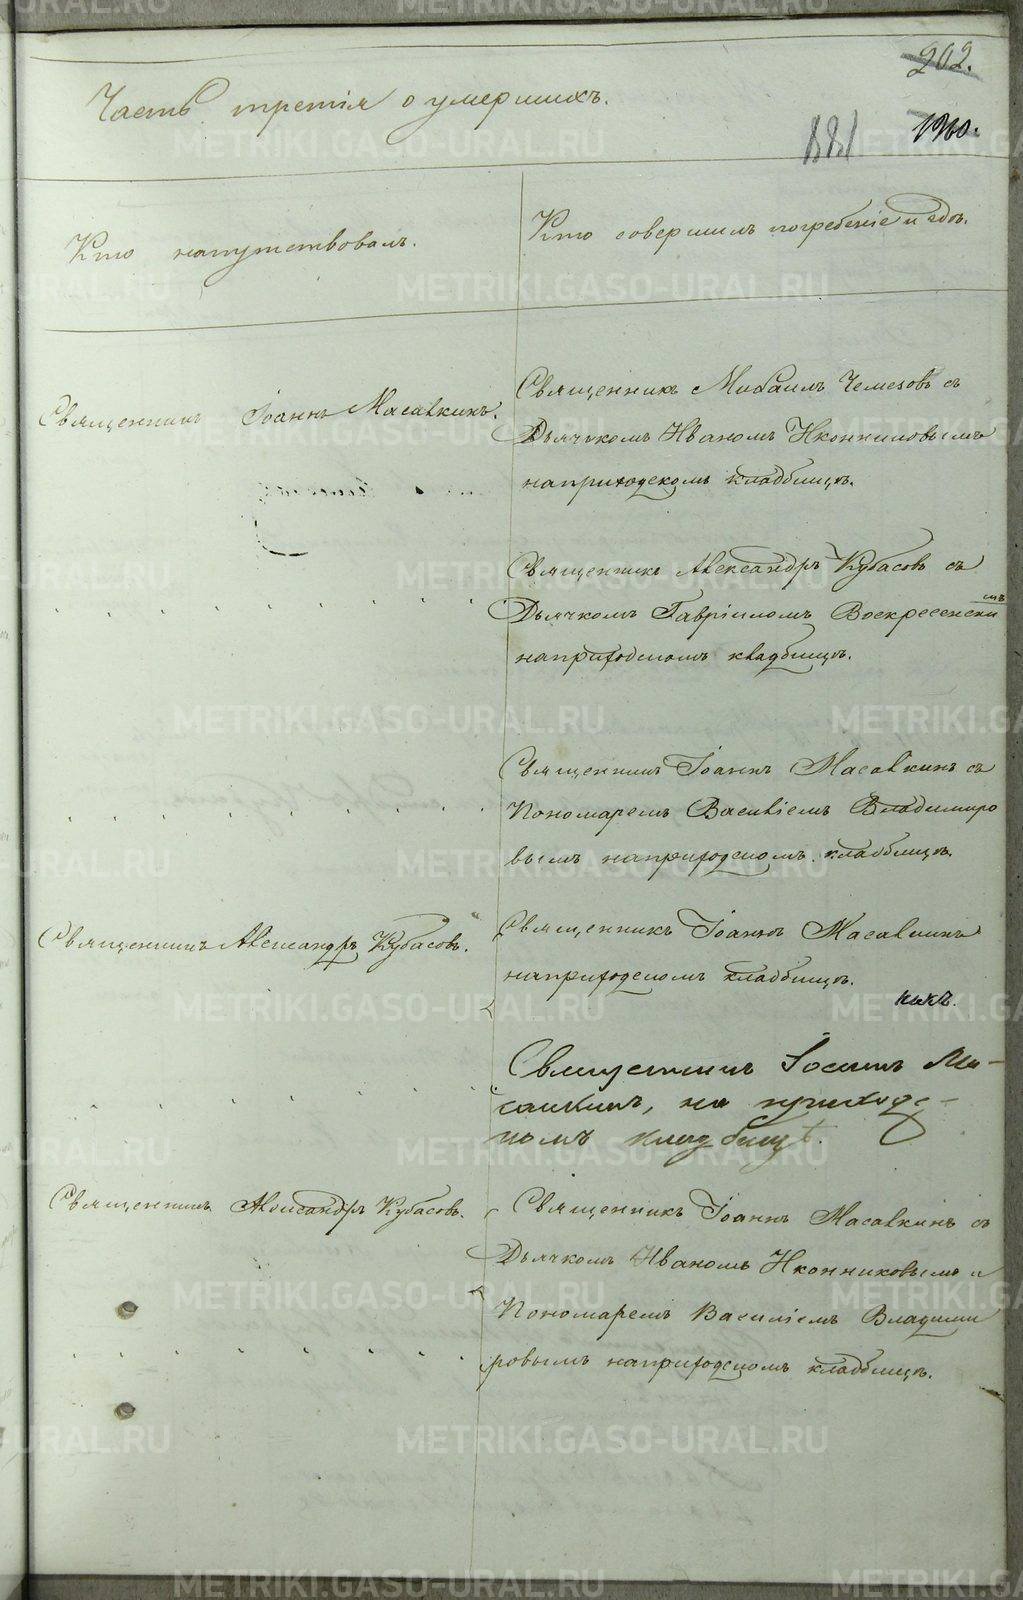 202.
Часть третія о умершихъ.
881
1960.
Кто напутствовалъ.
Кто совершилъ погребеніе и гдѣ.
Священникъ Іоаннъ Масалкинъ.
Священникъ Михаилъ Чемезовъ съ
Дьячкомъ Иваномъ Иконниковымъ
на приходскомъ кладбищѣ.
Священникъ Александръ Кубасовъ съ
Дьячкомъ Гавріиломъ Воскресенски
мъ
на приходскомъ кладбищѣ.
Священникъ Іоаннъ Масалкинъ съ
Пономаремъ Василіемъ Владимиро
вымъ на приходскомъ кладбищѣ.
Священникъ Александръ Кубасовъ.
Священникъ Іоаннъ Масалкинъ
на приходскомъ кладбищѣ.
Священникъ Ма-
салкинъ, на приходс-
комъ кладбищѣ.
Священникъ Александръ Кубасовъ.
Священникъ Іоаннъ Масалкинъ съ
Дьячкомъ Иваномъ Иконниковымъ и
Пономаремъ Василіемъ Владими
ровымъ на приходскомъ кладбищѣ.
METRIKI.GASO-URAL.RU